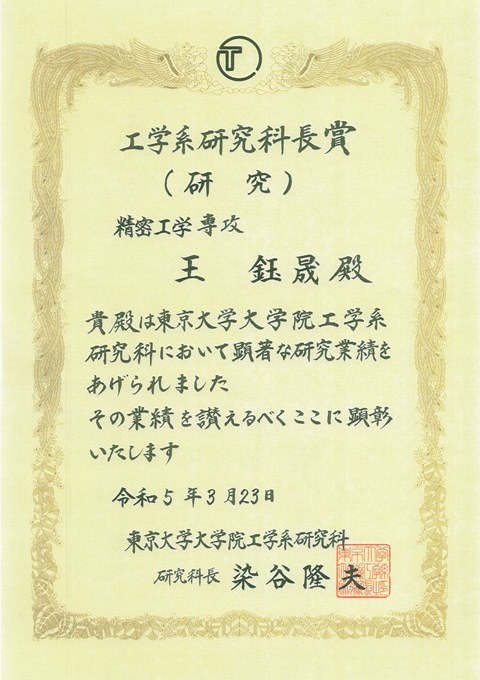 T
工学系研究科長賞
(研 究)
精密工学専攻
王 鈺晟殿
貴殿は東京大学大学院工学系
研究科において顕著な研究業績を
あげられました
その業績を讃えるべくここに顕彰
いたします
令和5年3月23日
東京大学大学院工学系研究科
研究科長 染谷隆夫